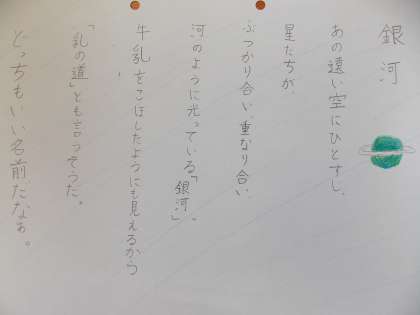 銀河
あの遠い空にひとすじ、
星たちが、
ぶつかり合い、重なり合い、
河のように光っている「銀河」。
牛乳をこぼしたようにも見えるから
「乳の道」とも言うそうだ。
どっちもいい名前だなぁ。